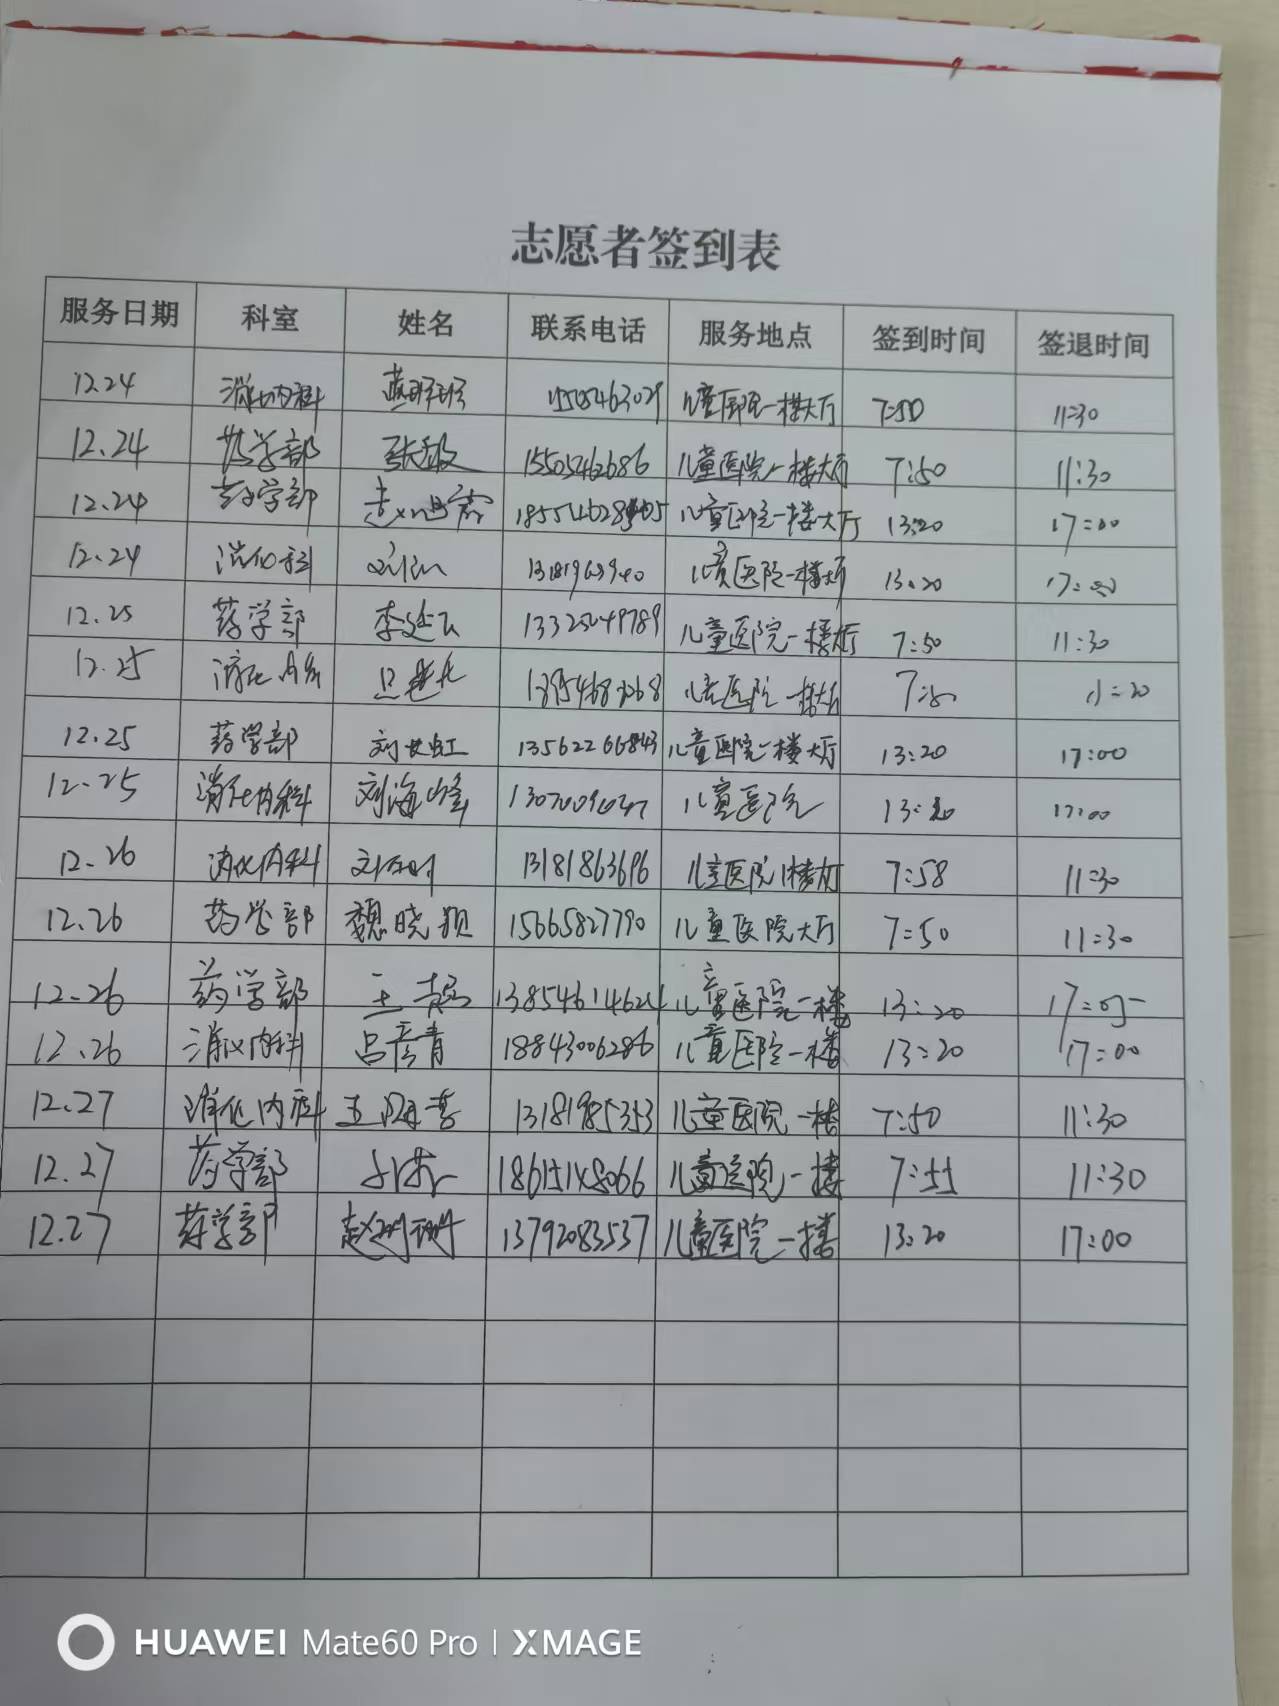 志愿者签到表
服务日期 科室 姓名 联系电话 服务地点 签到时间 签退时间
12.24 消化内科 儿童医院一楼大厅 7:50 11:30
12.24 药学部 张敏 15505462686 儿童医院一楼大厅 7:50 11:30
12.24 药学部 儿童医院一楼大厅 13:20 17:00
12.24 消化科 儿童医院一楼大厅 13:20 17:00
12.25 药学部 李延飞 儿童医院一楼大厅 7:50 11:30
12.25 消化内科 儿童医院一楼大厅 7:50
12.25 药学部 刘长虹 13562266843 儿童医院一楼大厅 13:20 17:00
12.25 消化内科 刘海峰 儿童医院 17:00
12.26 消化内科 13181863696 儿童医院1楼大厅 7:58 11:30
12.26 药学部 魏晓颖 15665827790 儿童医院大厅 7:50 11:30
12.26 药学部 13854614624 儿童医院一楼 13:20 17:05
12.26 消化内科 吕彦青 18843006286 儿童医院一楼 13:20 17:00
12.27 消化内科 13181985353 儿童医院一楼 7:50 11:30
12.27 药学部 18615148066 儿童医院一楼 7:55 11:30
12.27 药学部 赵珊珊 13792083537 儿童医院一楼 13:20 17:00
HUAWEI Mate60 Pro | XMAGE